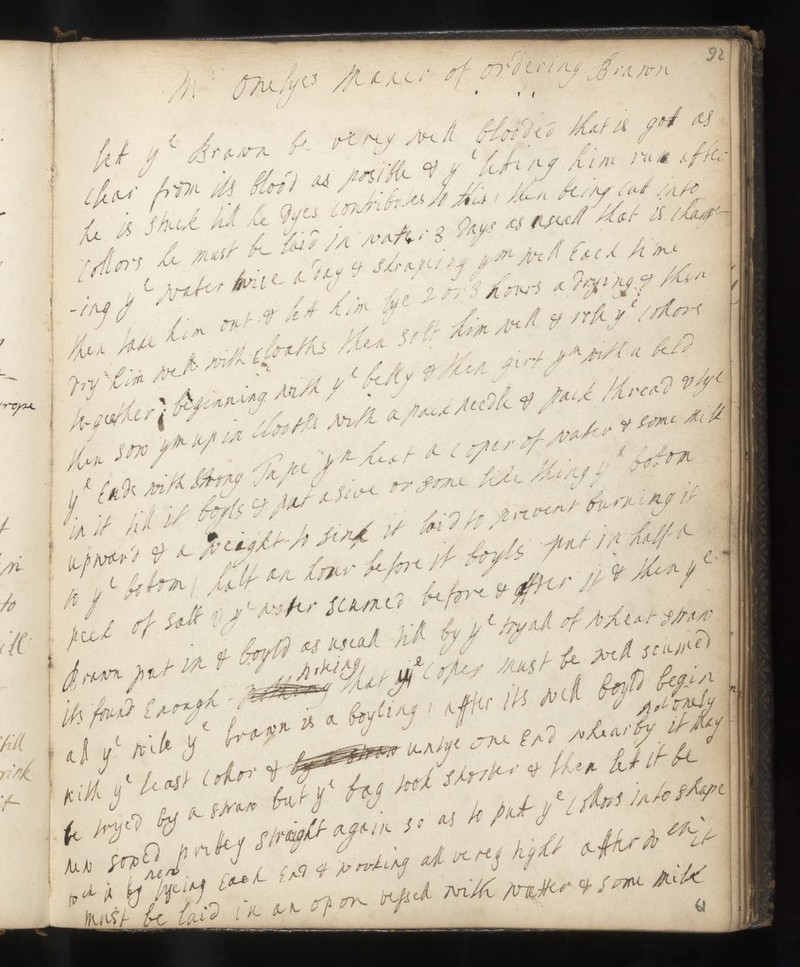 92
Mr Onelyes Maner of ordering Brawn
lett ye Brawn be verey well blooded that is got as
clear from its blood as posible & ye leting him run after
he is stuck till he Dyes contributes to this, then being cut into
Collors he must be laid in water 3 Days as useall that is change
-ing ye water twice a day & scrapeing ym well Each time
then take him out & lett him lye 2 or 3 hours a drying & then
Dry him well with cloaths then Salt him well & roll ye Collors
to-geather: beginning with ye belly & then girt ym with a belt
then sow ym up in Clooths with a pack needle & pack thread & tye
ye Ends with Strong Tape yn heat a Coper of water & some milk
in it till it boyls & put a sive or some like thing ye botom
upward & a weight to sink it laid to prevent burning it
to ye botom, half an hour before it boyls put in half a
peck of Salt & ye water scumed before & after it & then ye
Brawn put in & boyld as useall till by ye tryall of wheat straw
its found Enough. noteing that ye Coper must be well scumed
all ye wile ye brawn is a boyling, after its well boyld begin
with ye least Collor & untye one End whearby it may
not onely
be tryed by a straw but ye bag took shorter & then lett it be
new sowed prittey straight again so as to putt ye Collors into shape
wch is by new tyeing Each End & working all verey tight after wch it
must be laid in an open vessell with watter & some milk